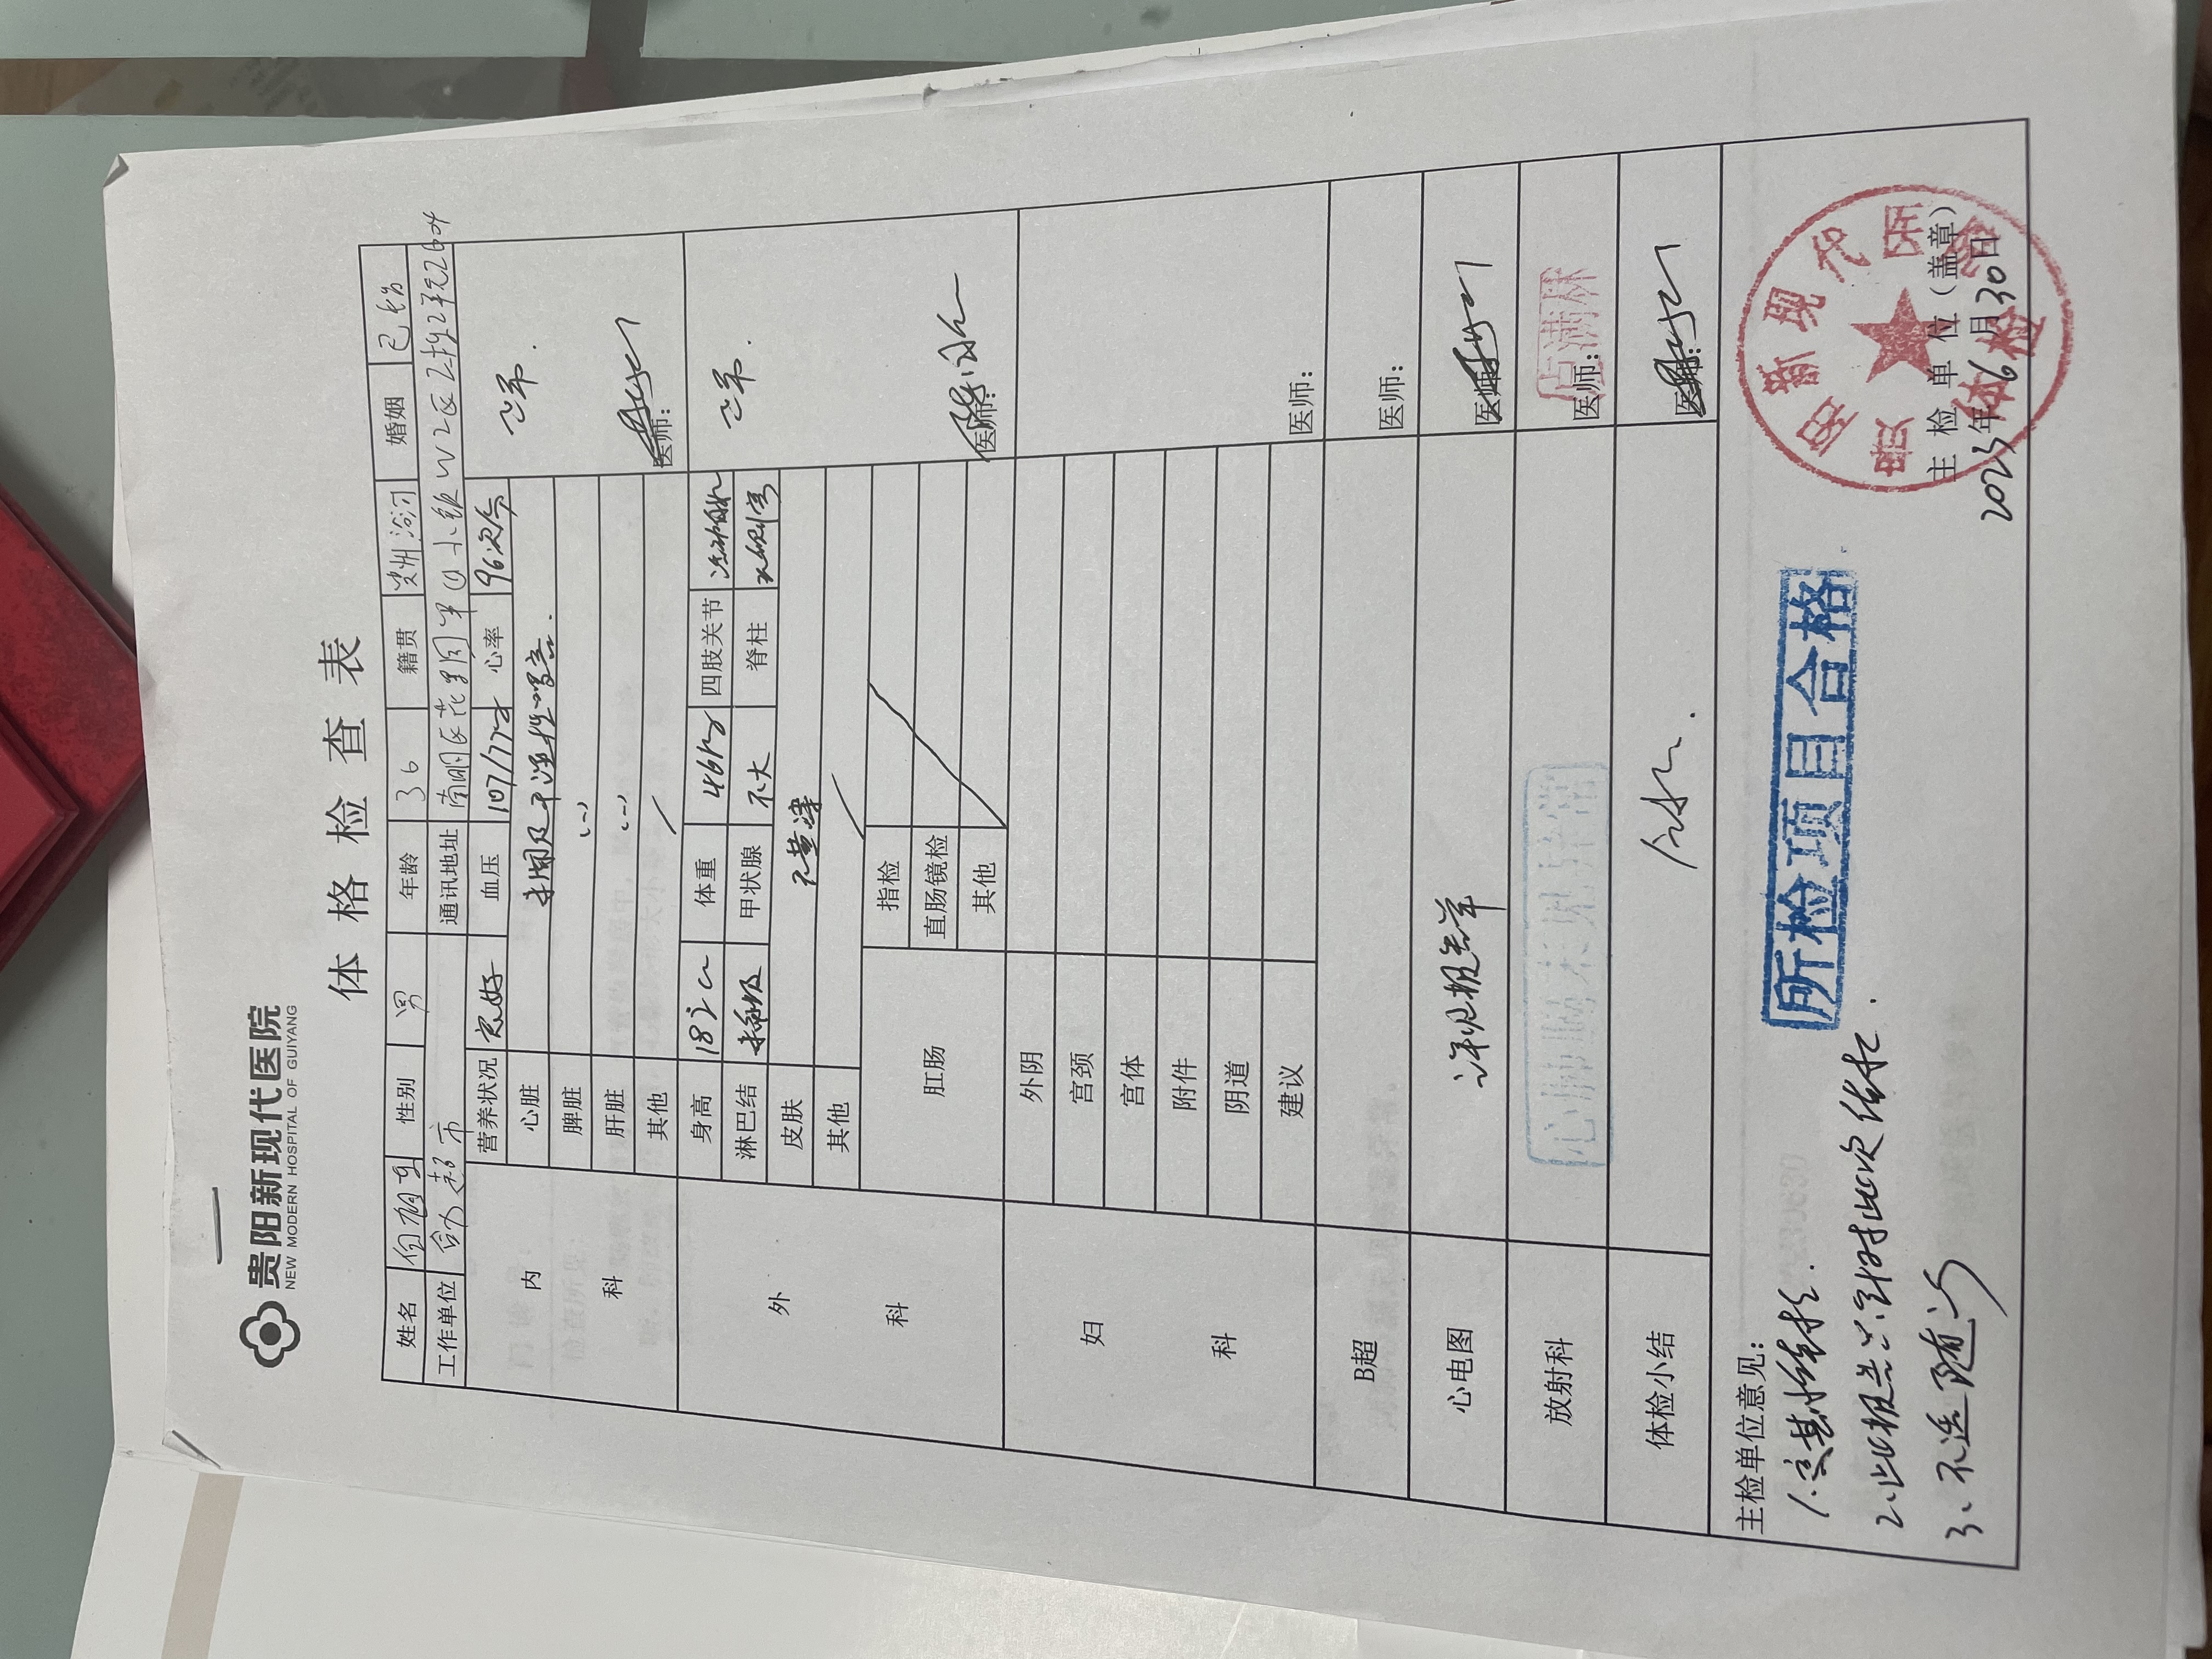 贵阳新现代医院
NEW MODERN HOSPITAL OF GUIYANG
体格检查表
姓名 性别 男 年龄 36 籍贯 贵州 婚姻 已婚
工作单位 超市 通讯地址 南明区花果园 W2区2栋2单元2604
内科
营养状况 良好 血压 107/77 心率 96次/分
心脏 未闻及干湿性啰音.
脾脏 (-)
肝脏 (-)
其他 /
正常.
医师:
外科
身高 体重 46kg 四肢关节
淋巴结 甲状腺 不大 脊柱
皮肤 无黄染
其他 /
正常.
肛肠
指检
直肠镜检
其他
医师:
妇科
外阴
宫颈
宫体
附件
阴道
建议
医师:
B超 医师:
心电图 详见报告单 医师:
放射科 心肺膈未见异常 医师: 卢满林
体检小结 医师:
主检单位意见:
2、此报告只针对此次体检.
3、不适随诊
所检项目合格
贵阳新现代医院
体检
主检单位(盖章)
2023年6月30日